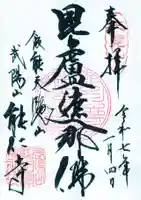 奉拝
令和七年
月四日
毘盧遮那佛
飯能天覧山
武陽山
能仁寺